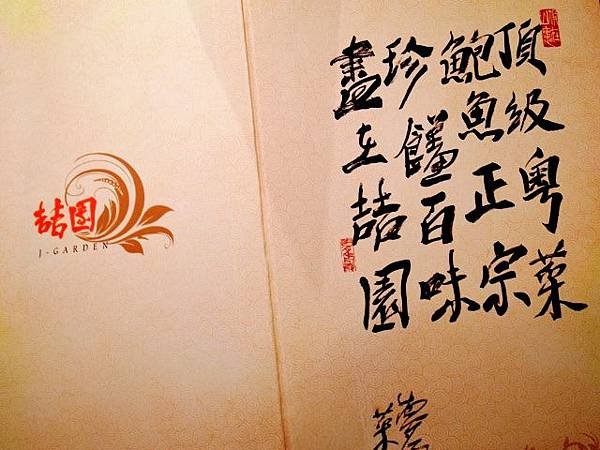 頂級粵菜
鮑魚正宗
珍饈百味
盡在喆園
喆園
J-GARDEN